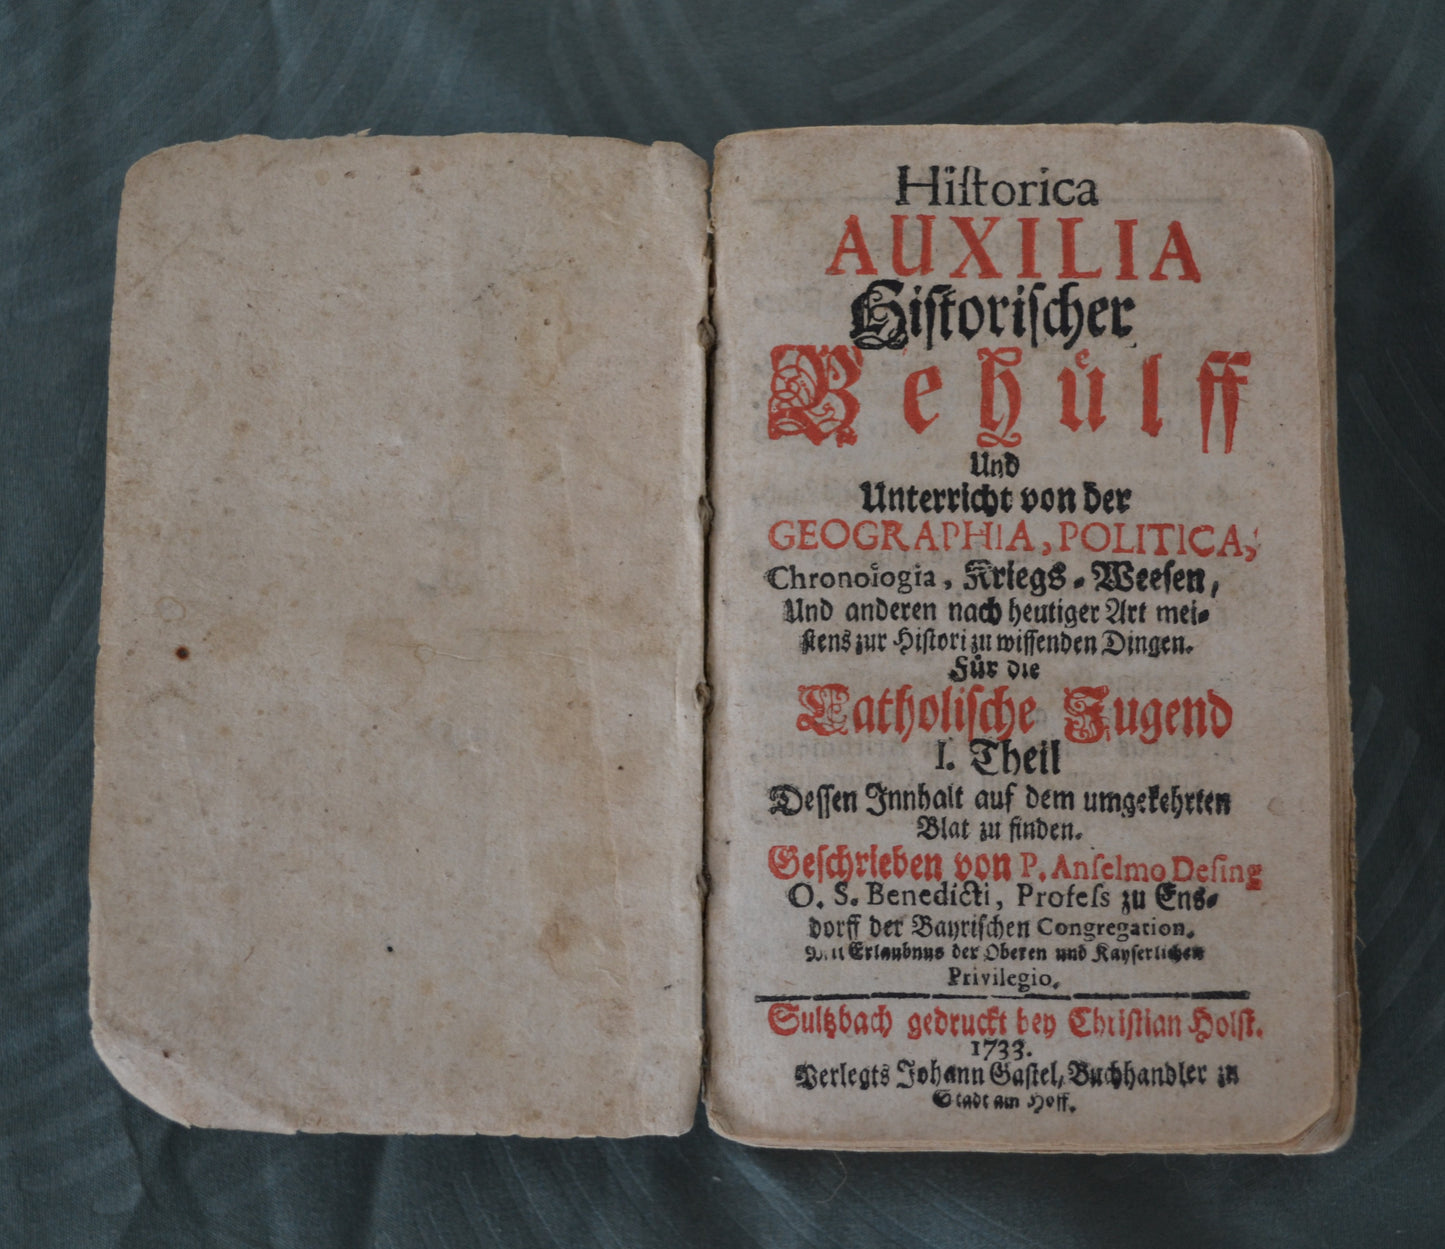 Hiſtorica
AUXILIA
Hiſtoriſcher
Behuͤlff
Und
Unterricht von der
GEOGRAPHIA, POLITICA,
Chronologia, Kriegs-Weeſen,
Und anderen nach heutiger Art mei-
ſtens zur Hiſtori zu wiſſenden Dingen.
Fuͤr die
Catholiſche Jugend
I. Theil
Deſſen Innhalt auf dem umgekehrten
Blat zu finden.
Geſchrieben von P. Anſelmo Deſing
O. S. Benedicti, Profeſs zu Ens-
dorff der Bayriſchen Congregation.
Mit Erlaubnus der Oberen und Kayſerlichen
Privilegio.
Sultzbach gedruckt bey Chriſtian Holſt.
1733.
Verlegts Johann Gaſtel, Buchhandler zu
Stadt am Hoff.